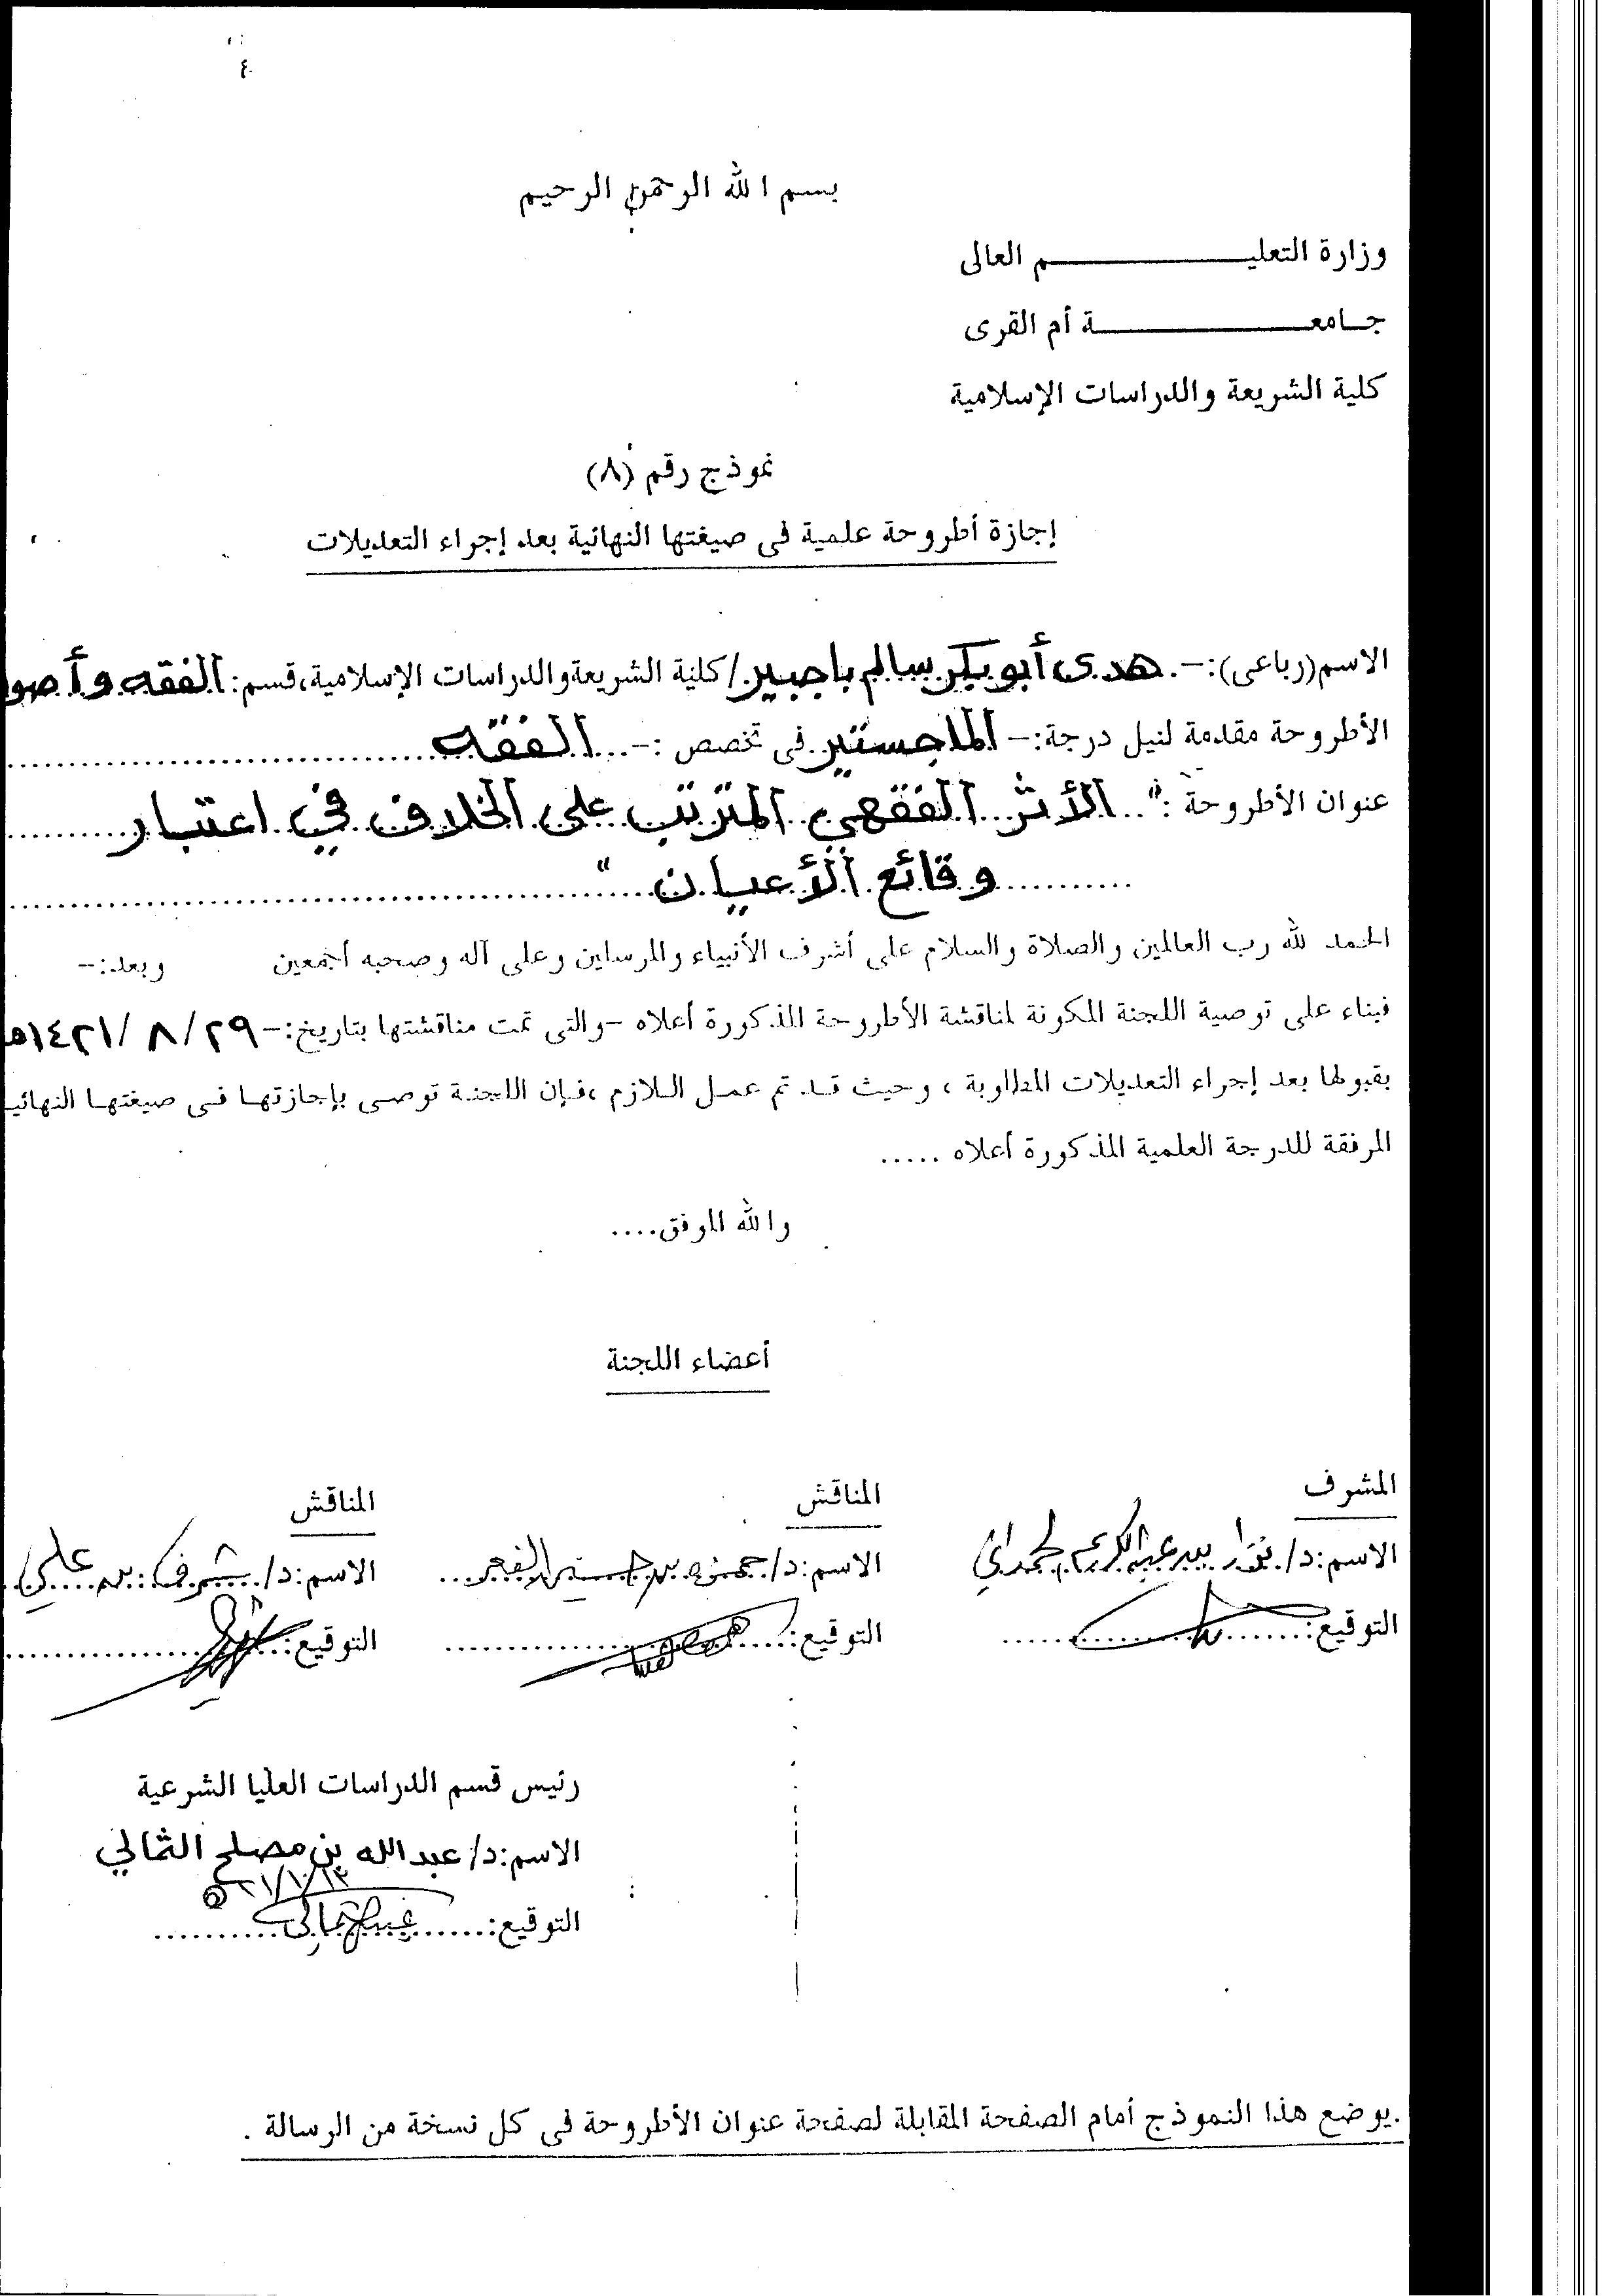 ٤
بسم الله الرحمن الرحيم
وزارة التعليــــــــــــم العالى
جـامعــــــــــــة أم القرى
كلية الشريعة والدراسات الإسلامية
نموذج رقم (٨)
إجازة أطروحة علمية فى صيغتها النهائية بعد إجراء التعديلات
الاسم(رباعى):- هدى أبو بكر سالم باجبير/كلية الشريعة والدراسات الإسلامية،قسم: الفقه وأصو
الأطروحة مقدمة لنيل درجة:- الماجستير فى تخصص :- ...الفقه...
عنوان الأطروحة :"..الأثر الفقهي المترتب على الخلاف في اعتبار
وقائع الأعيان"
الحمد لله رب العالمين والصلاة والسلام على أشرف الأنبياء والمرسلين وعلى آله وصحبه أجمعين وبعد:-
فبناء على توصية اللجنة المكونة لمناقشة الأطروحة المذكورة أعلاه -والتى تمت مناقشتها بتاريخ:- ٢٩/ ٨ /١٤٢١هـ
بقبولها بعد إجراء التعديلات المطلوبة ، وحيث قد تم عمل اللازم ،فإن اللجنة توصى بإجازتها فى صيغتها النهائيـ
المرفقة للدرجة العلمية المذكورة أعلاه .....
والله الموفق....
أعضاء اللجنة
المشرف المناقش المناقش
الاسم:د/ بن عبد الكريم الاسم:د/ حمزه بن حسين الفعر الاسم:د/ شرف بن علي
التوقيع: التوقيع: التوقيع:
رئيس قسم الدراسات العليا الشرعية
الاسم:د/ عبدالله بن مصلح الثمالي
التوقيع:
.يوضع هذا النموذج أمام الصفحة المقابلة لصفحة عنوان الأطروحة فى كل نسخة من الرسالة .